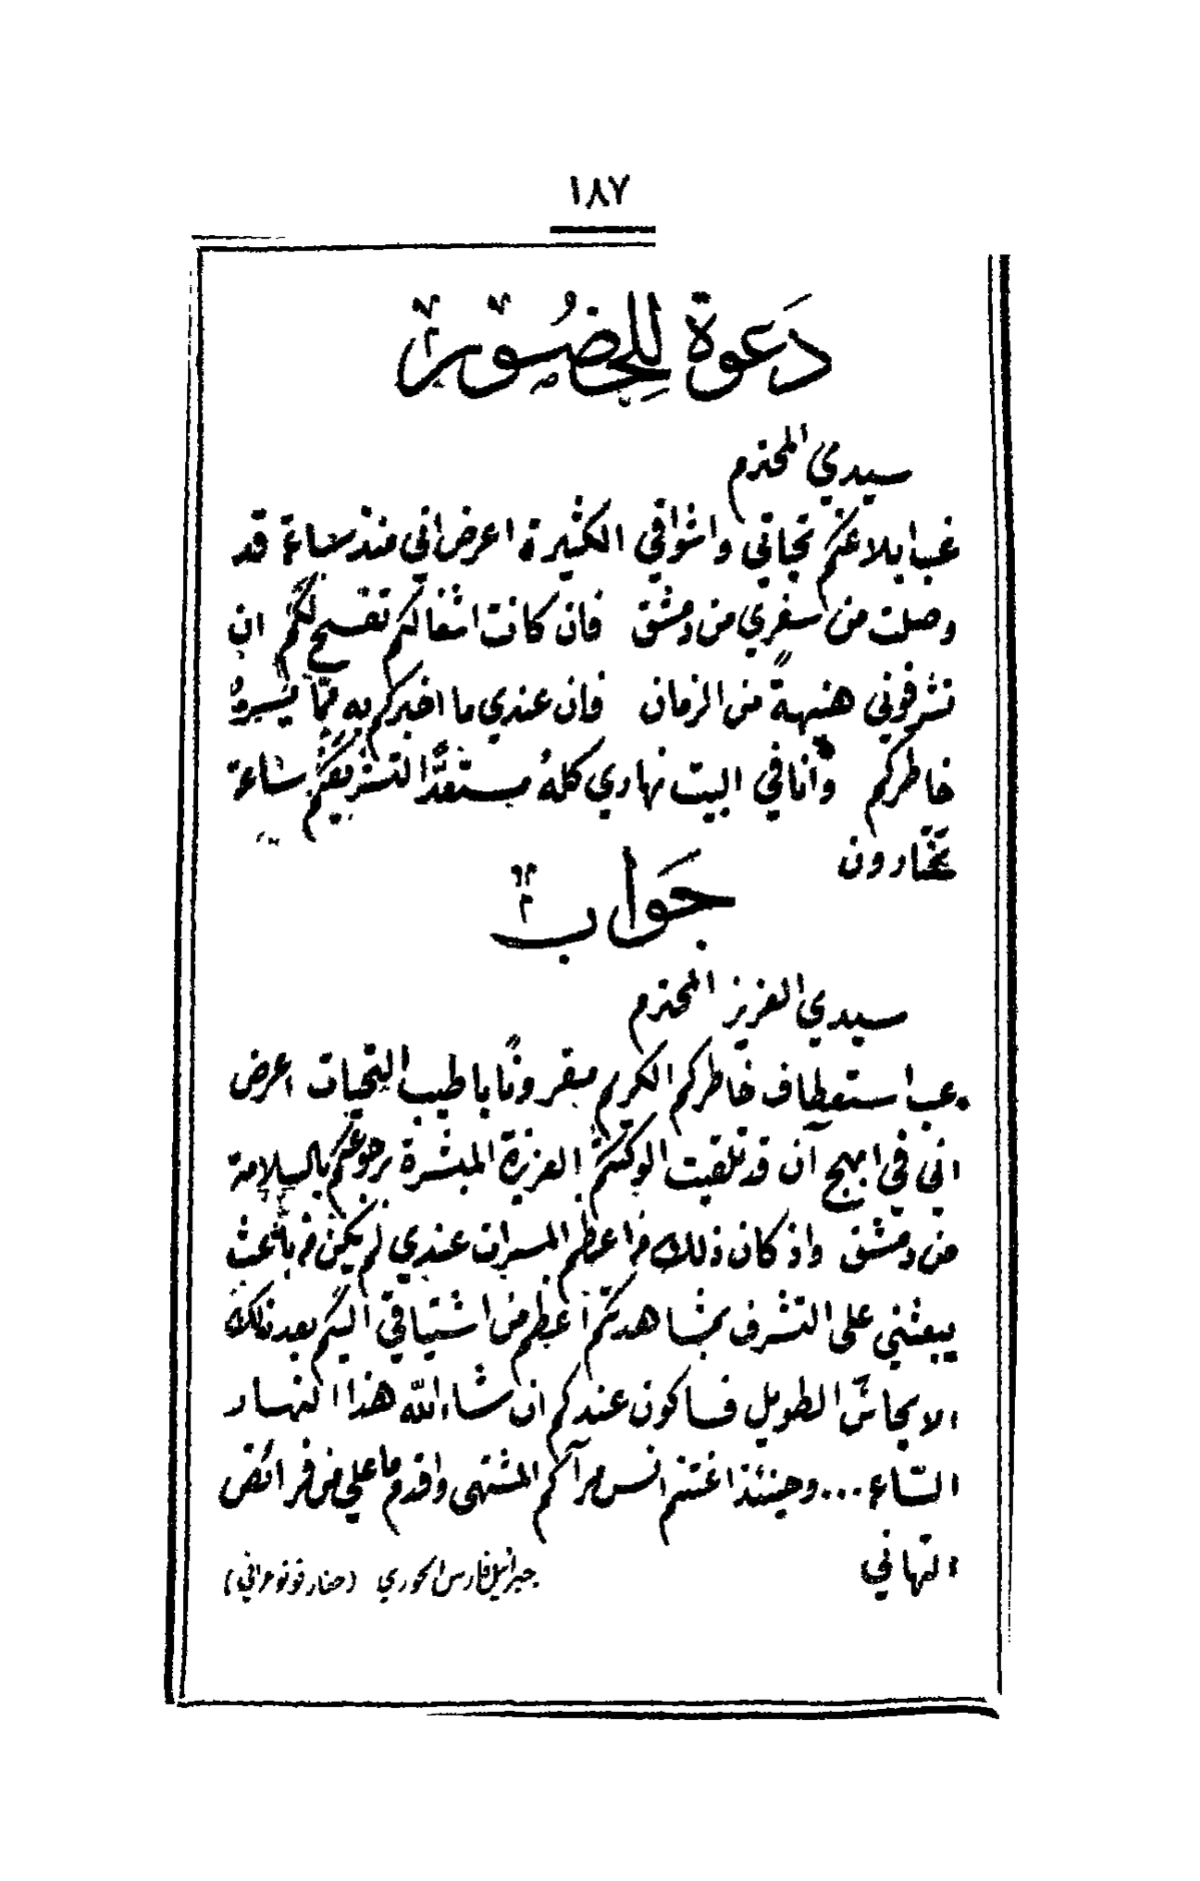 ١٨٧
دَعوة للحِضُور
سيدي المحترم
غب ابلاغكم تحياتي واشواقي الكثيرة اعرض اني منذ ساعة قد
وصلت من سفري من دمشق فان كانت اشغالكم تفسح لكم ان
تشرفوني هنيهةً من الزمان فان عندي ما اخبركم به مما يسرهُ
خاطركم وانا في البيت نهاري كلهُ مستعدًّا لتشريفكم ساعة
تختارون
جَواب
سيدي العزيز المحترم
غب استعطاف خاطركم الكريم مقرونًا باطيب التحيات اعرض
اني في ابهج آن قد تلقيت الوكتكم العزيزة المبشرة برجوعكم بالسلامة
من دمشق واذ كان ذلك من اعظم المسرات عندي لم يكن من باعث
يبعثني على التشرف بمشاهدتكم اعظم من اشتياقي اليكم بعد ذلك
الايحاش الطويل فساكون عندكم ان شاء الله هذا النهار
الساعة ... وحينئذ اغتنم انس مرآكم المشتهى واقدم ما علي من فرائض
التهاني
جبرائيل فارس الخوري